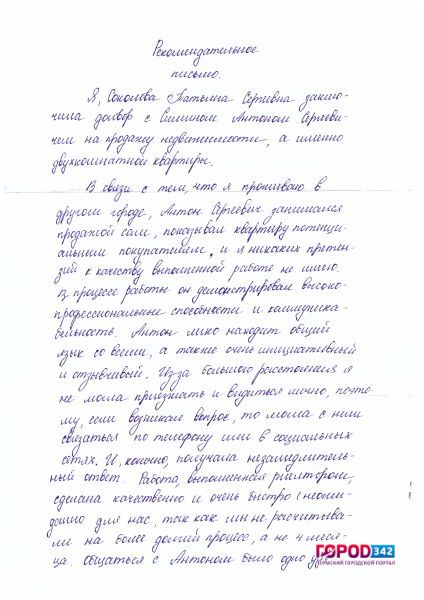 Рекомендательное
письмо.
Я, Соколова Татьяна Сергеевна заклю-
чила договор с Антоном Сергееви-
чем на продажу недвижимости, а именно
двухкомнатной квартиры.
В связи с тем, что я проживаю в
другом городе, Антон Сергеевич занимался
продажей сам, показывал квартиру потенци-
альным покупателем, и я никаких претен-
зий к качеству выполненной работе не имею.
В процессе работы он демонстрировал высоко-
профессиональные способности и коммуника-
бельность. Антон легко находит общий
язык со всеми, а также очень инициативный
и отзывчивый. Из-за большого расстояния я
не могла приезжать и видеться лично, поэто-
му, если возникал вопрос, то могла с ним
связаться по телефону или в социальных
сетях. И, конечно, получала незамедлитель-
ный ответ. Работа, выполненная риэлтором,
сделана качественно и очень быстро (неожи-
данно для нас, так как мы не расчитыва-
ли на более долгий процесс, а не 4 меся-
ца. Общаться с Антоном было одно удо
ГОРОД 342
ПЕРМСКИЙ ГОРОДСКОЙ ПОРТАЛ